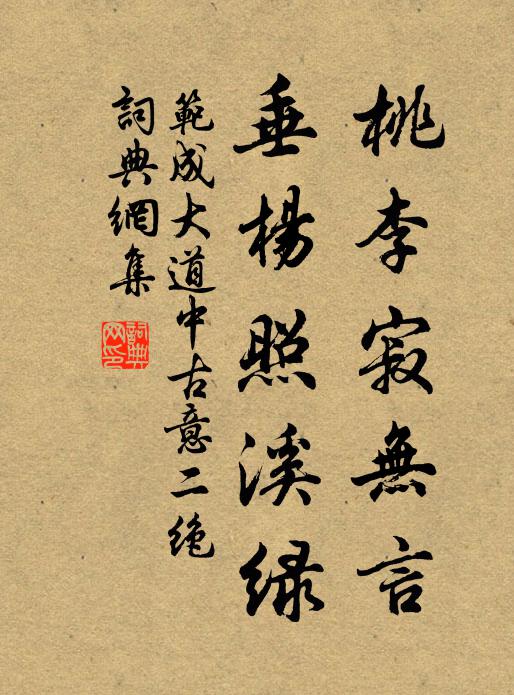 桃李寂無言
垂楊照溪綠
範成大道中古意二絶
詞典網集
詞典网印